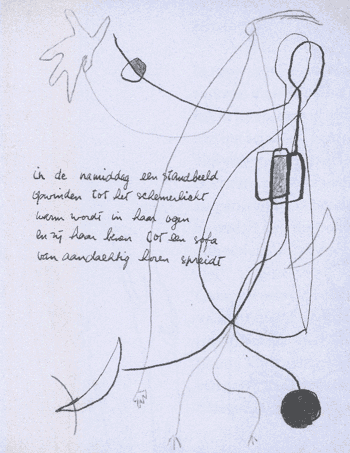 in de namiddag een standbeeld
opwinden tot het schemerlicht
warm wordt in haar ogen
en zij haar leven tot een sofa
van aandachtig horen spreidt